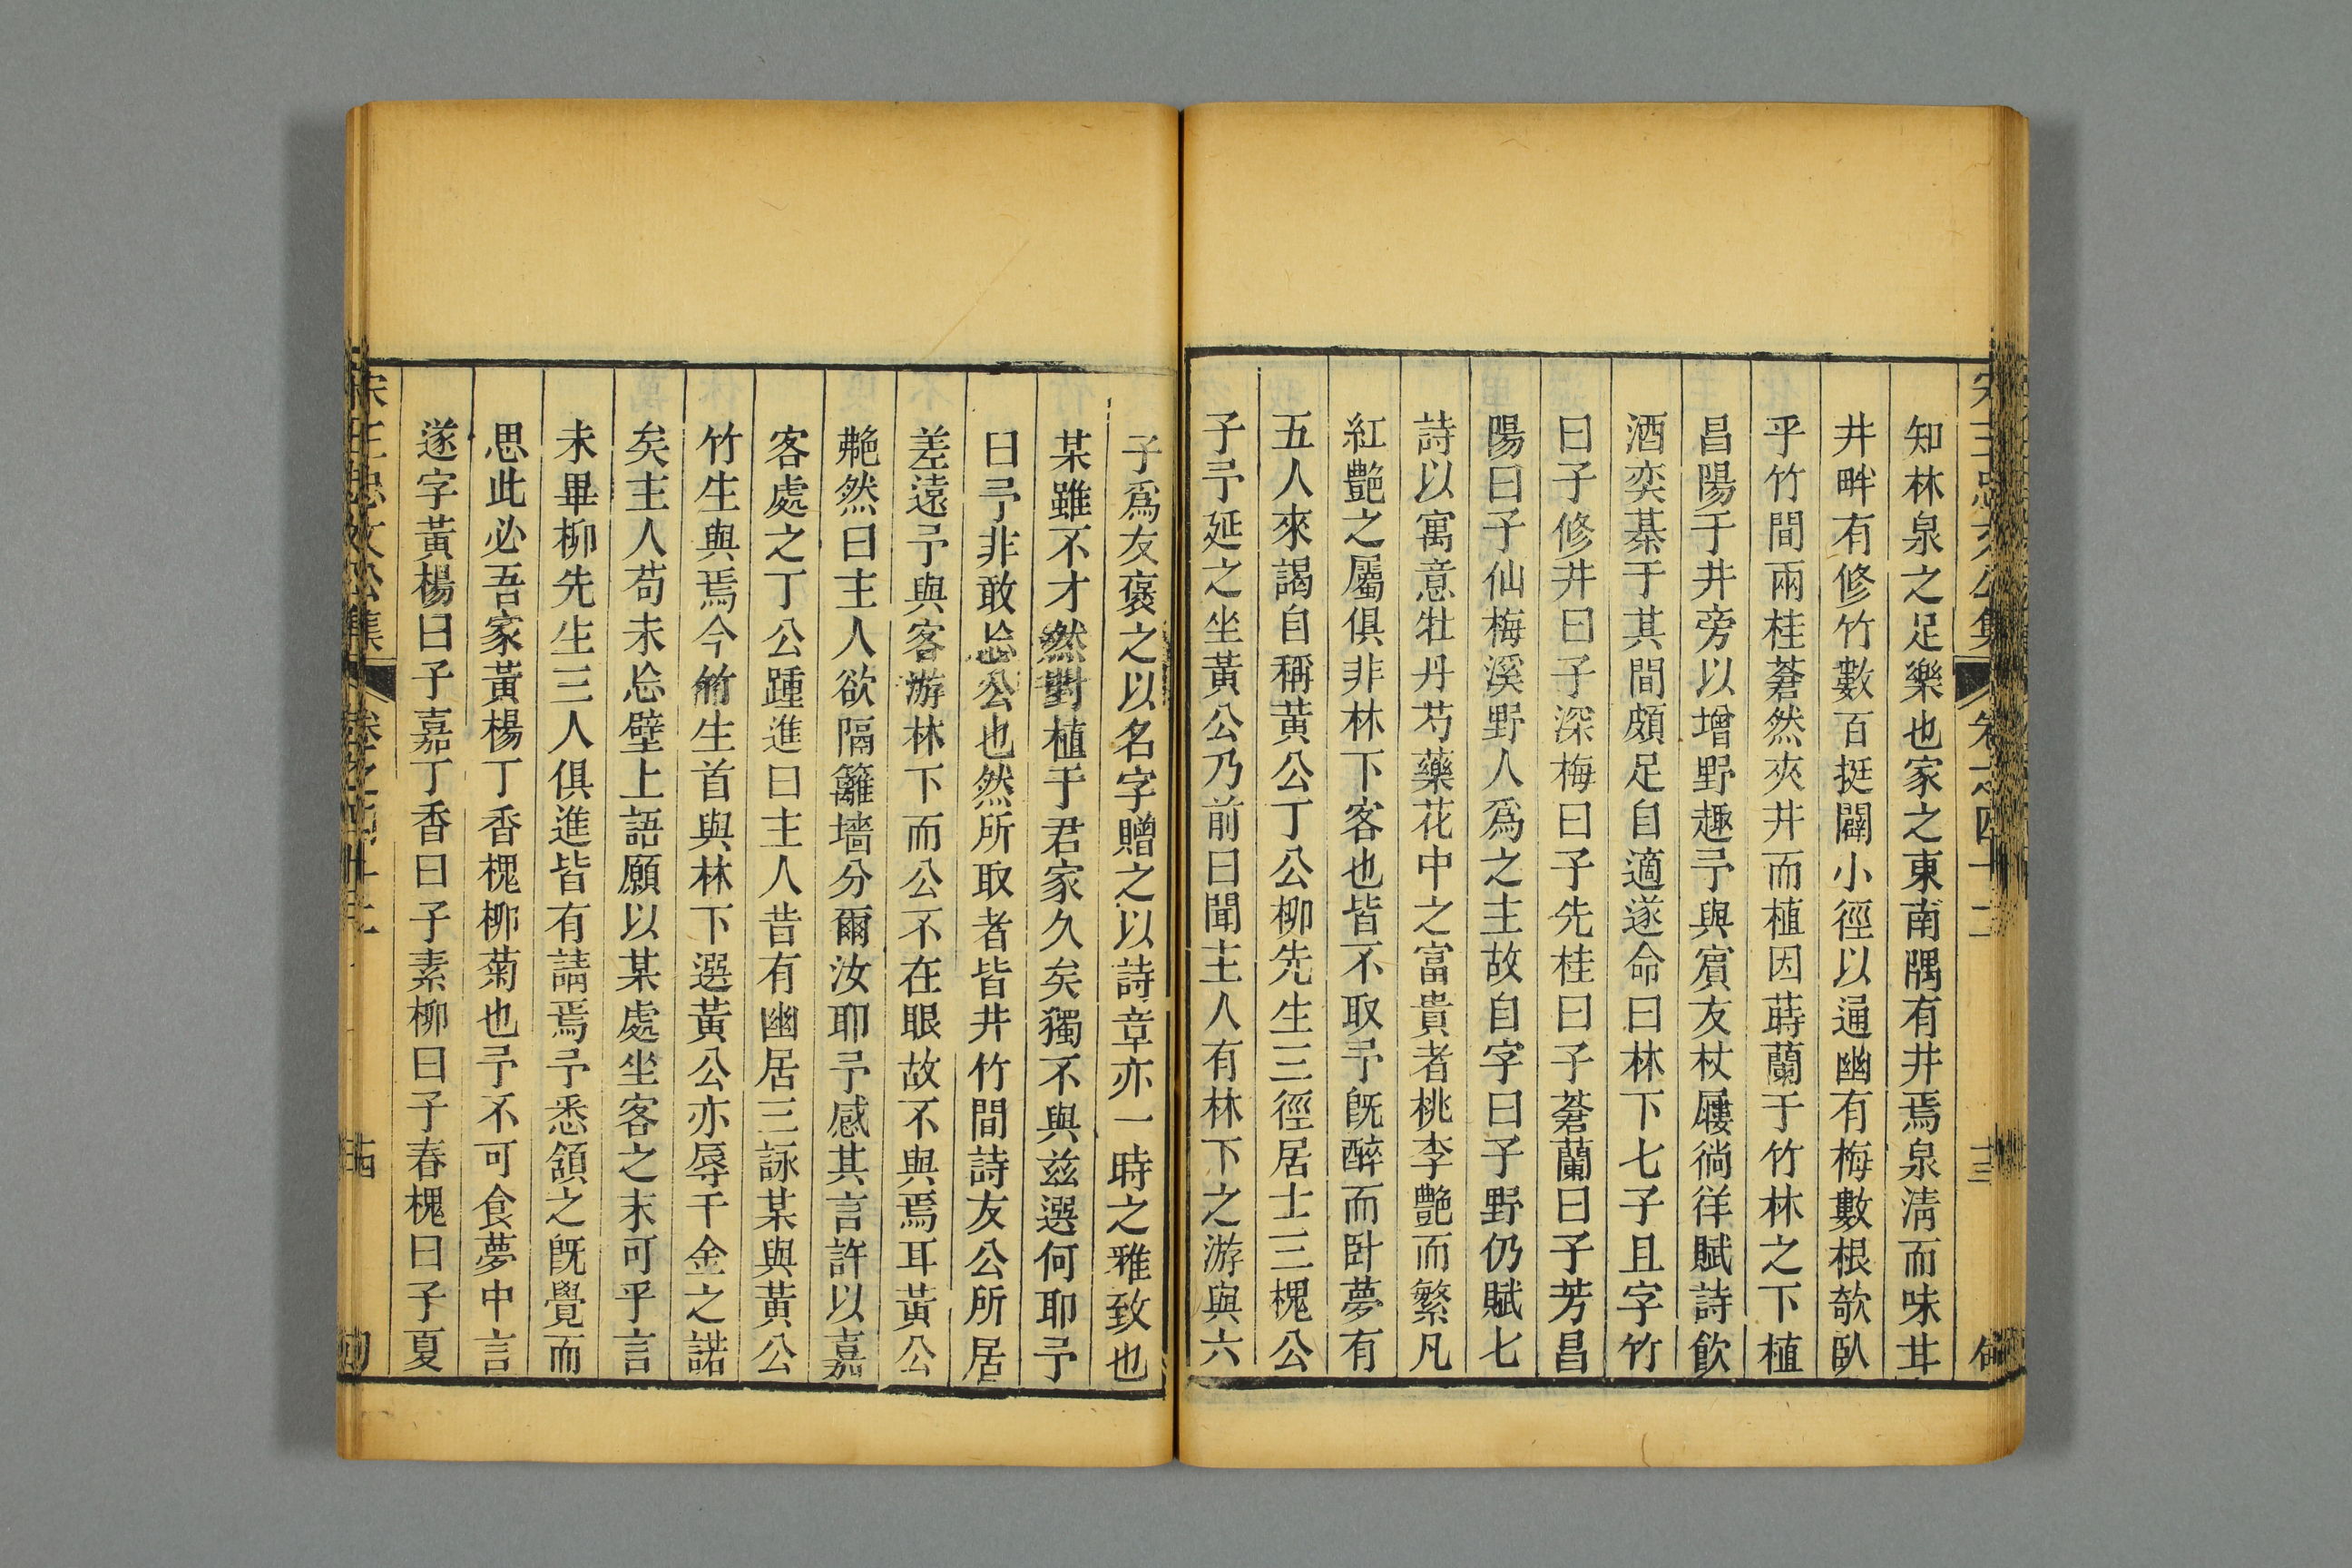 知林泉之足樂也家之東南隅有井焉泉清而味甘
井畔有修竹數百挺闢小徑以通幽有梅數根欹臥
乎竹間兩桂蒼然夾井而植因蒔蘭于竹林之下植
昌陽于井旁以增野趣予與賓友杖屨徜徉賦詩飲
酒奕棊于其間頗足自適遂命曰林下七子且字竹
曰子修井曰子深梅曰子先桂曰子蒼蘭曰子芳昌
陽曰子仙梅溪野人爲之主故自字曰子野仍賦七
詩以寓意牡丹芍藥花中之富貴者桃李艷而繁凡
紅艷之屬俱非林下客也皆不取予旣醉而卧夢有
五人來謁自稱黃公丁公柳先生三徑居士三槐公
子予延之坐黃公乃前曰聞主人有林下之游與六
子爲友褒之以名字贈之以詩章亦一時之雅致也
某雖不才然對植于君家久矣獨不與茲選何耶予
曰予非敢忘公也然所取者皆井竹間詩友公所居
差遠予與客游林下而公不在眼故不與焉耳黃公
艴然曰主人欲隔籬墻分爾汝耶予感其言許以嘉
客處之丁公踵進曰主人昔有幽居三詠某與黃公
竹生與焉今竹生首與林下選黃公亦辱千金之諾
矣主人苟未忘壁上語願以某處坐客之末可乎言
未畢柳先生三人俱進皆有請焉予悉頷之旣覺而
思此必吾家黃楊丁香槐柳菊也予不可食夢中言
遂字黃楊曰子嘉丁香曰子素柳曰子春槐曰子夏